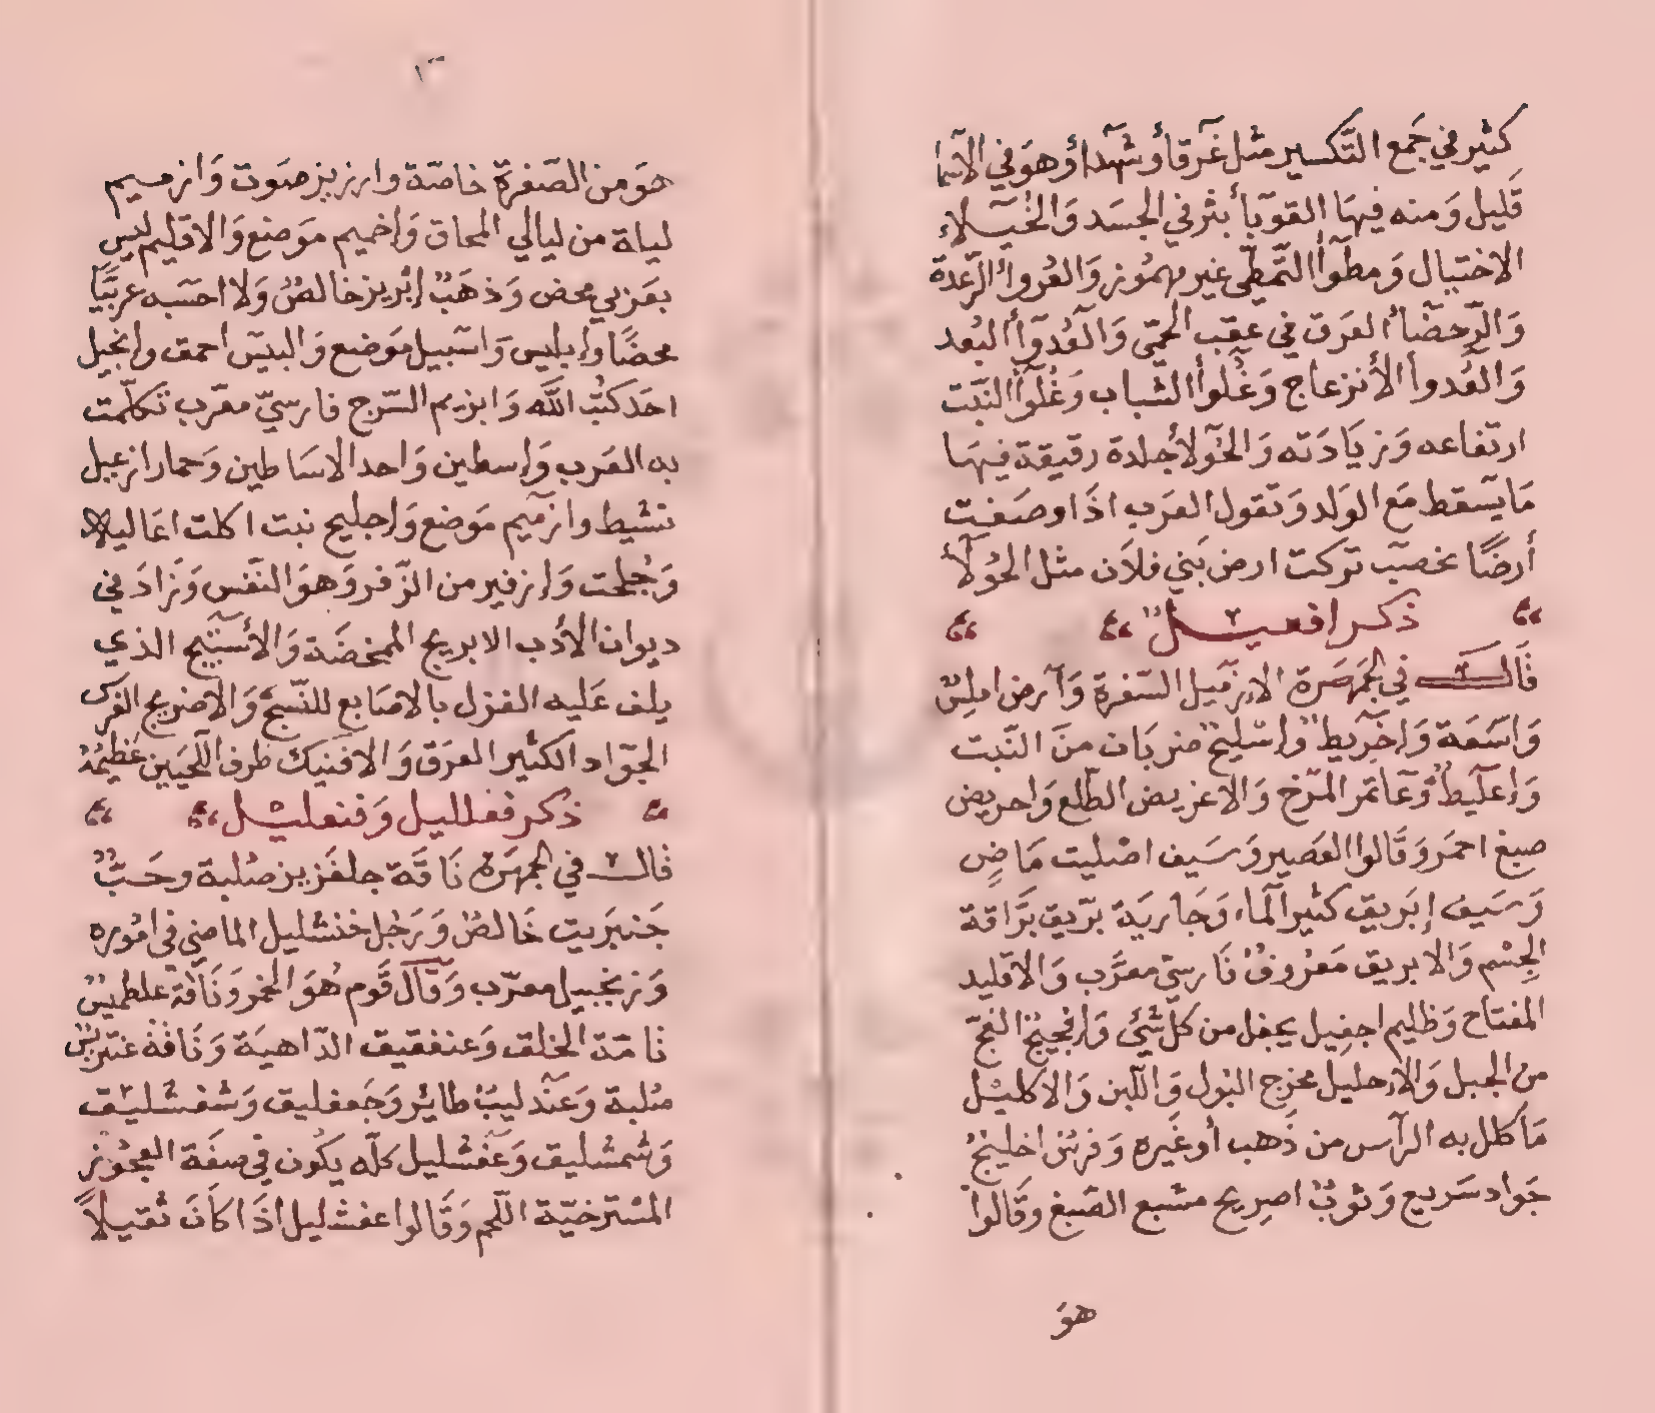 كثير في جَمع التَّكسير مثل غَرقأ وشهدأ وهوَ في الاسما
قَليل وَمنه فيهَا القوَبأ بثر في الجسَد وَالخُيَلاء
الاختيال وَمطوَأ التَّمطّى غير مهمُوز وَالعُروأ الرّعدة
وَالرّحضَأ العرَق في عقب الحمّى وَالعُدوَأ البُعد
وَالعُدوأ الأنزعاج وَغُلوأ الشباب وَغُلوأ النبَت
ارتفاعه وَزيَادَته وَالحوَلأ جلدة رقيقة فيهَا
مَا يسَقط مَع الوَلد وَتقول العرَب اذَا وصَفت
أرضًا بخصب تركت ارض بَني فلاَن مثل الحُولأ
ذكر افعيل
قَال في الجَمهَرة الازميل الشفرة وَارض املِيس
وَاسَعَة وَاخريط وإسليح ضربَان منَ النبَت
وَإعليط وُعَا ثمَر المرّخ وَالاغريض الطّلع وَاحريض
صبغ احمَر وَقَالوا العَصِير وَسَيف اصليت مَاضٍ
وَسَيف إبَريق كثير المآء وَجَاريَة برّيق برَّاقة
الجِسْم وَالابريق مَعْروفُ فَارسي معرَّب وَالاقليد
المفتاح وَظليم اجفِيل يجفل من كلّ شَئ وَافجيجُ الفجّ
من الجبل وَالاحليل مخرج البَول وَاللّبن وَالاكليل
مَا كلل به الرأس من ذَهب أو غَيره وَفرسُ اخليجُ
جوَاد سَريع وَثوبُ اصرِيح مشبع الصَّبغ وَقَالوا
هوَ
١٣
هوَ من الصّفرة خاصّة وارزيز صوَت وَازميم
ليلة من ليالي المحاق وَاخميم موَضع وَالاقليم ليس
بعَربي محض وَذهَبُ إبْريز خالصُ وَلا احسَبه عربَيًّا
محضًا وإبليس وَاسبيل موَضع وَالبيس احمق وإنجيل
احَد كتُب الله وَابزيم السّرج فارسيّ معَرب تكلَّمت
به العَرب وَإسطين وَاحد الاسَاطين وَحمار ازعيل
نشيط وازميم موَضع وَإجليح نبت اكلت اعَاليه
وَجُلحت وَإزفير من الزّفر وَهوَ النّفس وَزَادَ في
ديوان الأدب الابريج الممخضَة وَالأسبيج الذي
يلف عَليه الغزل بالاصَابع للنّسَج وَالاضريج الفرَس
الجوَاد الكثير العرَق وَالافنيك طرف اللَّحيَين عَظيمُهُ
ذكر فعلليل وَفنعليل
قال في الجمهَرة نَاقَة جلفَزيز صُلبة وحَبّ
حَنبَريت خَالصُ وَرَجُل خنشليل الماضي في امُوره
وَزنجبيل معرّب وَقَال قَوم هُوَ الخمر وَنَاقة علطميسُ
نامّة الخلق وَعنفقيق الدّاهيَة وَنَاقَة عَنتَريسُ
صُلبة وَعَندَليبُ طائر وَجَعفليق وَشفشليق
وَشمشليق وَعَفشليل كلّه يكُون في صفَة العَجُوز
المسْترخيّة اللّحم وَقَالوا عفشليل اذَا كانَ ثقيلاً